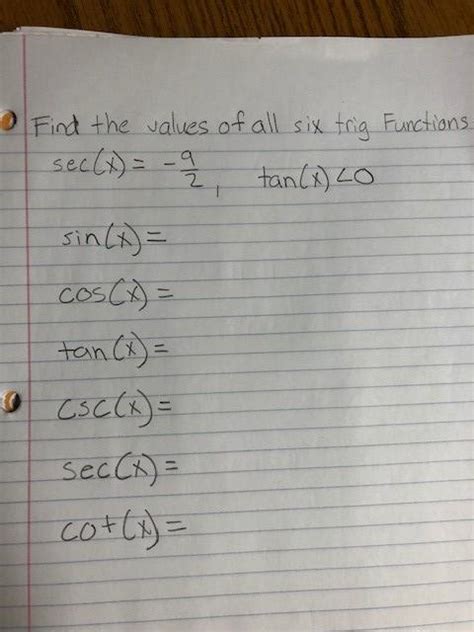 Find the values of all six trig Functions
sec(x) = -9/2, tan(x) <0
sin(x) =
cos(x) =
tan(x) =
csc(x) =
sec(x) =
cot(x) =